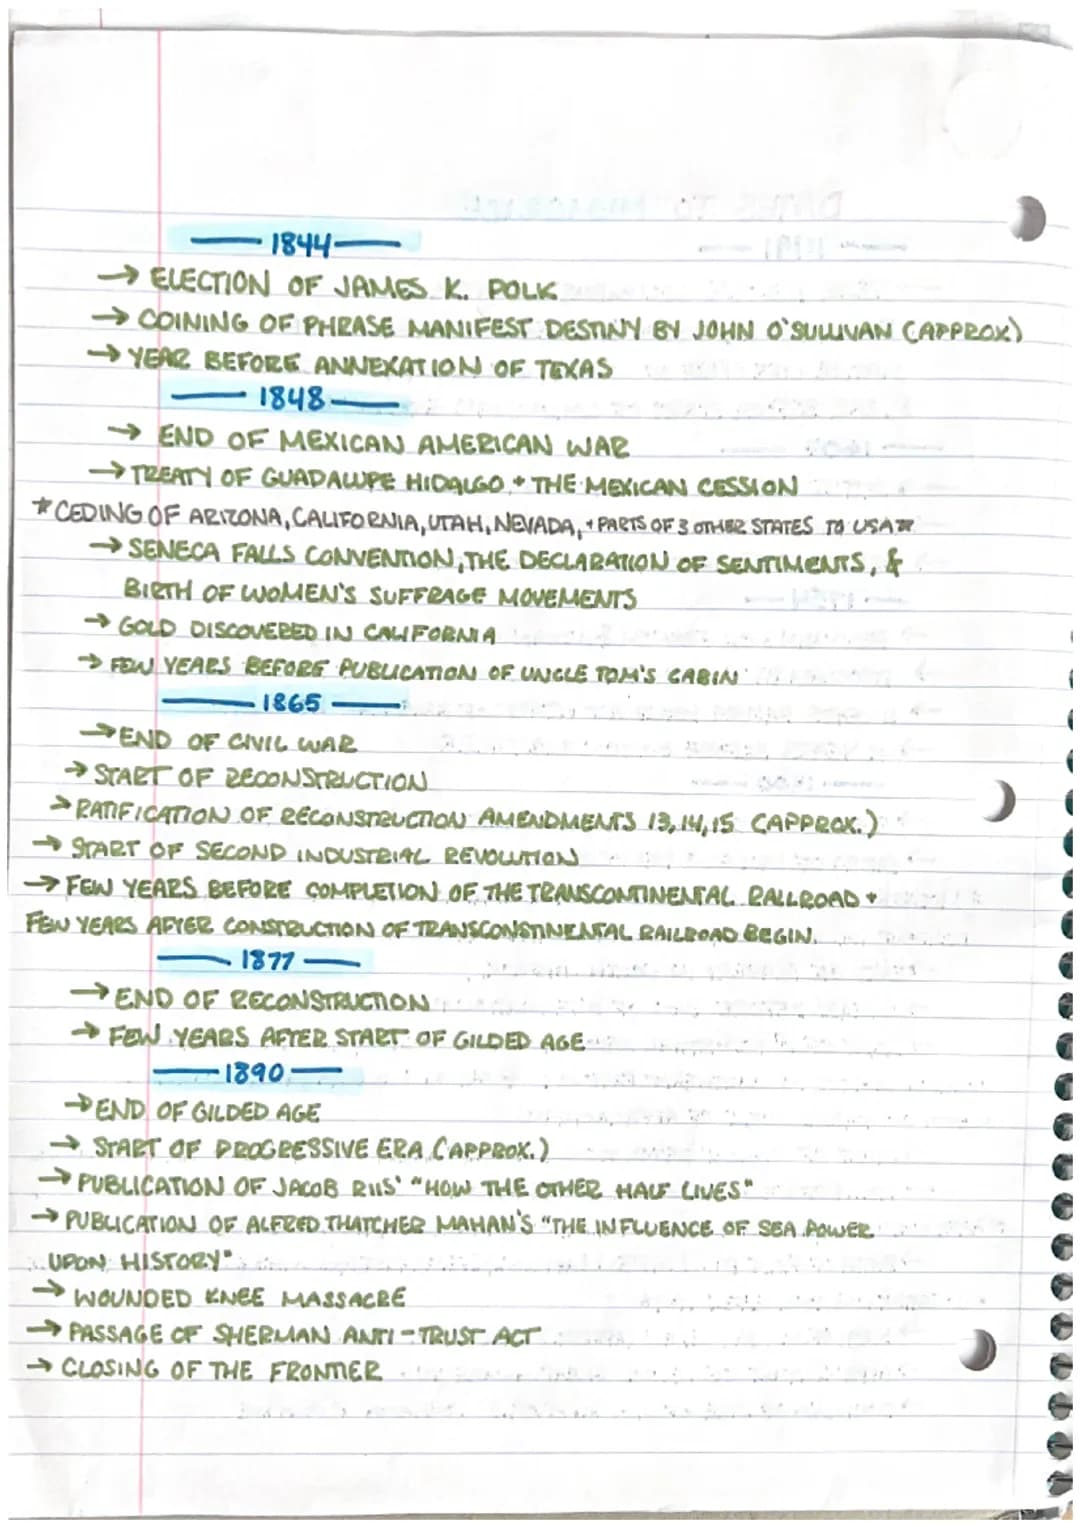 1844
→ ELECTION OF JAMES K. POLK
→ COINING OF PHRASE MANIFEST DESTINY BY JOHN O'SULLIVAN (APPROX)
→ YEAR BEFORE ANNEXATION OF TEXAS
1848
→ END OF MEXICAN AMERICAN WAR
→ TREATY OF GUADALUPE HIDALGO + THE MEXICAN CESSION
* CEDING OF ARIZONA, CALIFORNIA, UTAH, NEVADA, + PARTS OF 3 OTHER STATES TO USA *
→ SENECA FALLS CONVENTION, THE DECLARATION OF SENTIMENTS, &
BIRTH OF WOMEN'S SUFFRAGE MOVEMENTS
→ GOLD DISCOVERED IN CALIFORNIA
→ FEW YEARS BEFORE PUBLICATION OF UNCLE TOM'S CABIN
1865
→ END OF CIVIL WAR
→ START OF RECONSTRUCTION
→ RATIFICATION OF RECONSTRUCTION AMENDMENTS 13, 14, 15 (APPROX.)
→ START OF SECOND INDUSTRIAL REVOLUTION
→ FEW YEARS BEFORE COMPLETION OF THE TRANSCONTINENTAL RAILROAD +
FEW YEARS AFTER CONSTRUCTION OF TRANSCONSTINENTAL RAILROAD BEGIN.
1877
→ END OF RECONSTRUCTION
→ FEW YEARS AFTER START OF GILDED AGE
1890
→ END OF GILDED AGE
→ START OF PROGRESSIVE ERA (APPROX.)
→ PUBLICATION OF JACOB RIIS' "HOW THE OTHER HALF LIVES"
→ PUBLICATION OF ALFRED THATCHER MAHAN'S "THE INFLUENCE OF SEA POWER
UPON HISTORY"
→ WOUNDED KNEE MASSACRE
→ PASSAGE OF SHERMAN ANTI-TRUST ACT
→ CLOSING OF THE FRONTIER